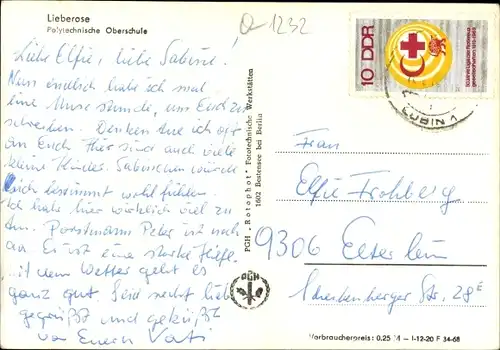 Lieberose
Polytechnische Oberschule
1232
Liebe Elfie, liebe Sabine!
Nun endlich habe ich mal
eine Musestunde, um Euch zu
schreiben. Denken tue ich oft
an Euch. Hier sind auch viele
kleine Kinder. Sabinchen würde
sich bestimmt wohl fühlen.
Ich habe hier wirklich viel zu
tun. Peter ist noch
da. Er ist eine starke Hilfe.
Mit dem Wetter geht es
ganz gut. Seid recht lieb
gegrüßt und geküßt
von Euern Vati
PGH „Rotophot" Fototechnische Werkstätten
1602 Bestensee bei Berlin
PGH
10 DDR
LÜBIN 1
Frau
Elfie Frohberg
9306 Elterlein
Scheibenberger Str. 28E
Verbraucherpreis: 0.25 M - I-12-20 F 34-68